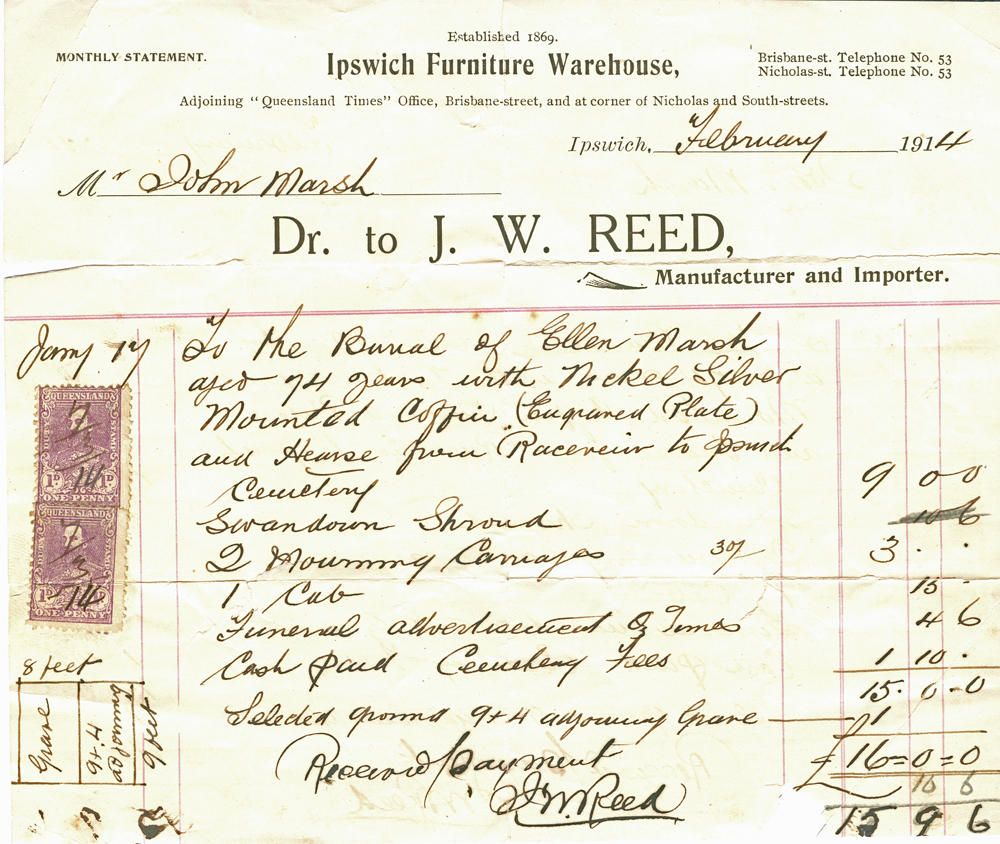 Established 1869.
MONTHLY STATEMENT.
Ipswich Furniture Warehouse,
Brisbane-st. Telephone No. 53
Nicholas-st. Telephone No. 53
Adjoining "Queensland Times" Office, Brisbane-street, and at corner of Nicholas and South-streets.
Ipswich, February 1914
Mr John Marsh
Dr. to J. W. REED,
Manufacturer and Importer.
Jany 17 To the Burial of Ellen Marsh
aged 74 years with Nickel Silver
Mounted Coffin (Engraved Plate)
and Hearse from Raceveiw to Ipswich
Cemetery 9 0 0
Swandown Shroud 10 6
2 Mourning Carriages 30/ 3 . .
1 Cab 15 -
Funeral advertisement Q Times 4 6
Cash paid Cemetery Fees 1 10 .
15 . 0 - 0
Selected ground 9+4 adjoining Grave 1
£16=0=0
Received payment
10 6
J W Reed
15 9 6
QUEENSLAND
DUTY STAMP
7/3/14
1D 1D
ONE PENNY
QUEENSLAND
DUTY STAMP
7/3/14
1D
ONE PENNY
8 feet
Grave
9+4
adjoining
9 feet